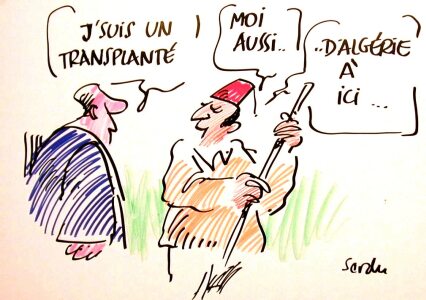 J'SUIS UN
TRANSPLANTÉ
MOI
AUSSI..
..D'ALGÉRIE
À
ICI ...
Serdu